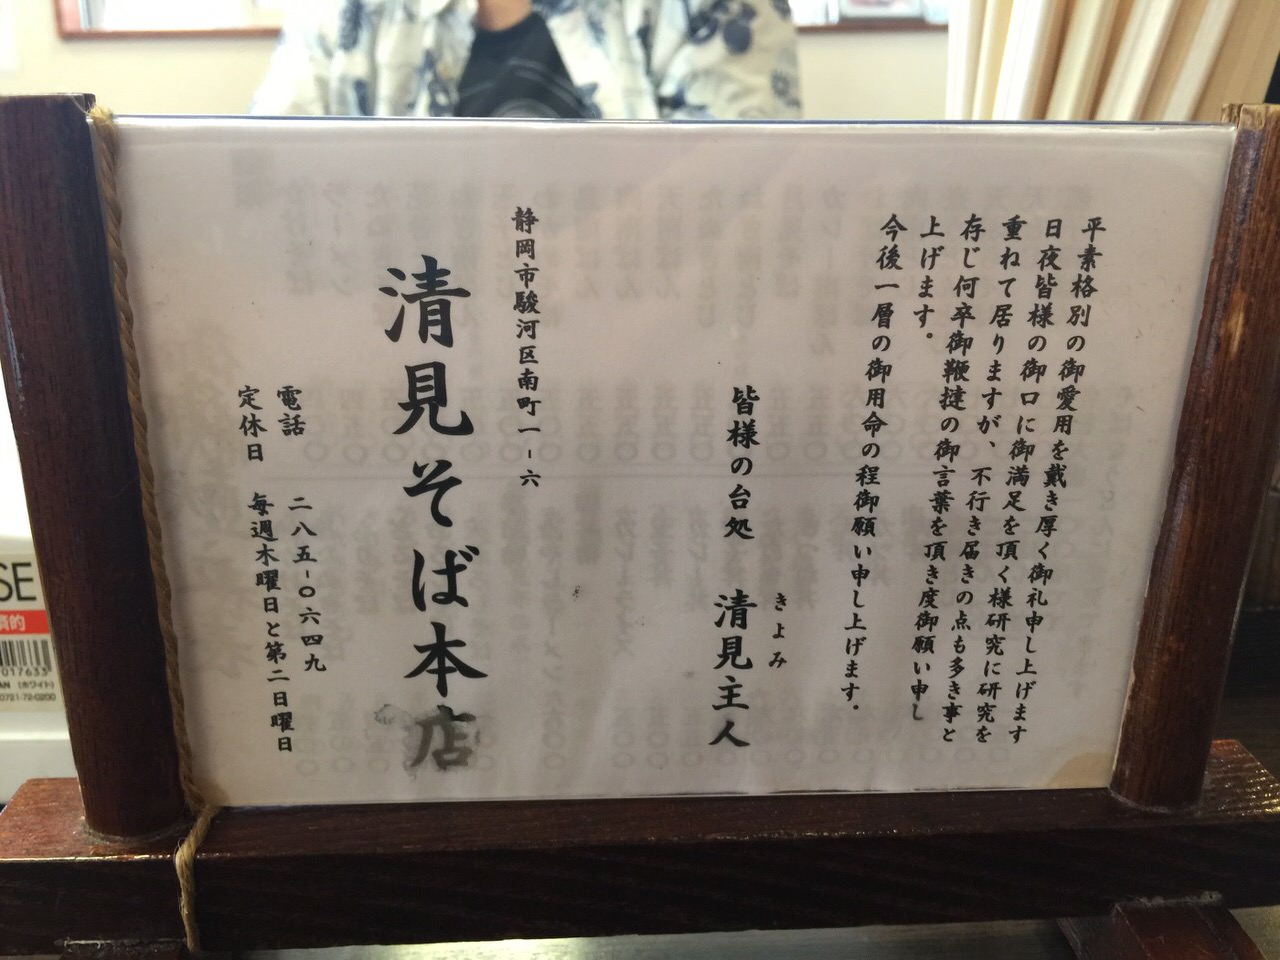 平素格別の御愛用を戴き厚く御礼申し上げます
日夜皆様の御口に御満足を頂く様研究に研究を
重ねて居りますが、不行き届きの点も多き事と
存じ何卒御鞭撻の御言葉を頂き度御願い申し
上げます。
今後一層の御用命の程御願い申し上げます。
皆様の台処
きよみ
清見主人
静岡市駿河区南町一-六
清見そば本店
電話 二八五-〇六四九
定休日 毎週木曜日と第二日曜日
SE
017633
(ホワイト)
0721-72-0200